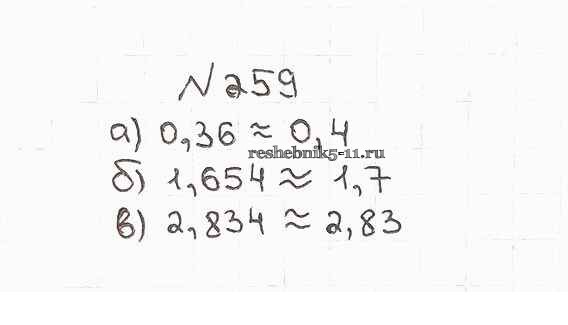 №259
а) 0,36 ≈ 0,4
reshebnik5-11.ru
б) 1,654 ≈ 1,7
в) 2,834 ≈ 2,83